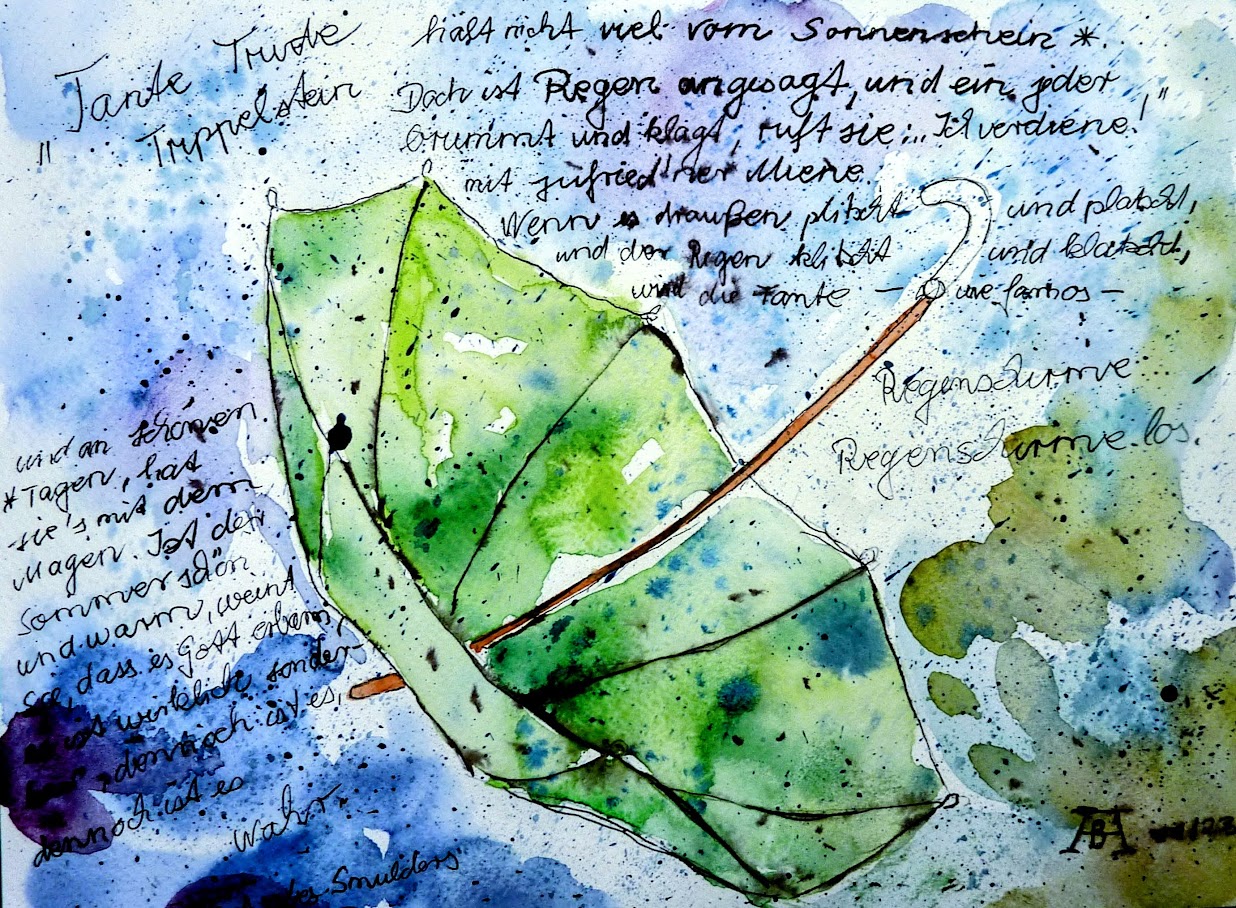 "Tante Trude
Trippelstein
hält nicht viel vom Sonnenschein *.
Doch ist Regen angesagt, und ein jeder
brummt und klagt, ruft sie: „Ich verdiene!"
mit zufried'ner Miene.
Wenn es draußen plitscht und platscht,
und der Regen klitscht und klatscht,
wird die Tante – wie famos –
Regenschirme
Regenschirme los.
und an schönen
* Tagen, hat
sie's mit dem
Magen. Ist der
Sommer schön
und warm, weint
sie, dass es Gott erbarm,
es ist wirklich sonder-
bar, dennoch ist es,
dennoch ist es
wahr.
Smulders
ABA